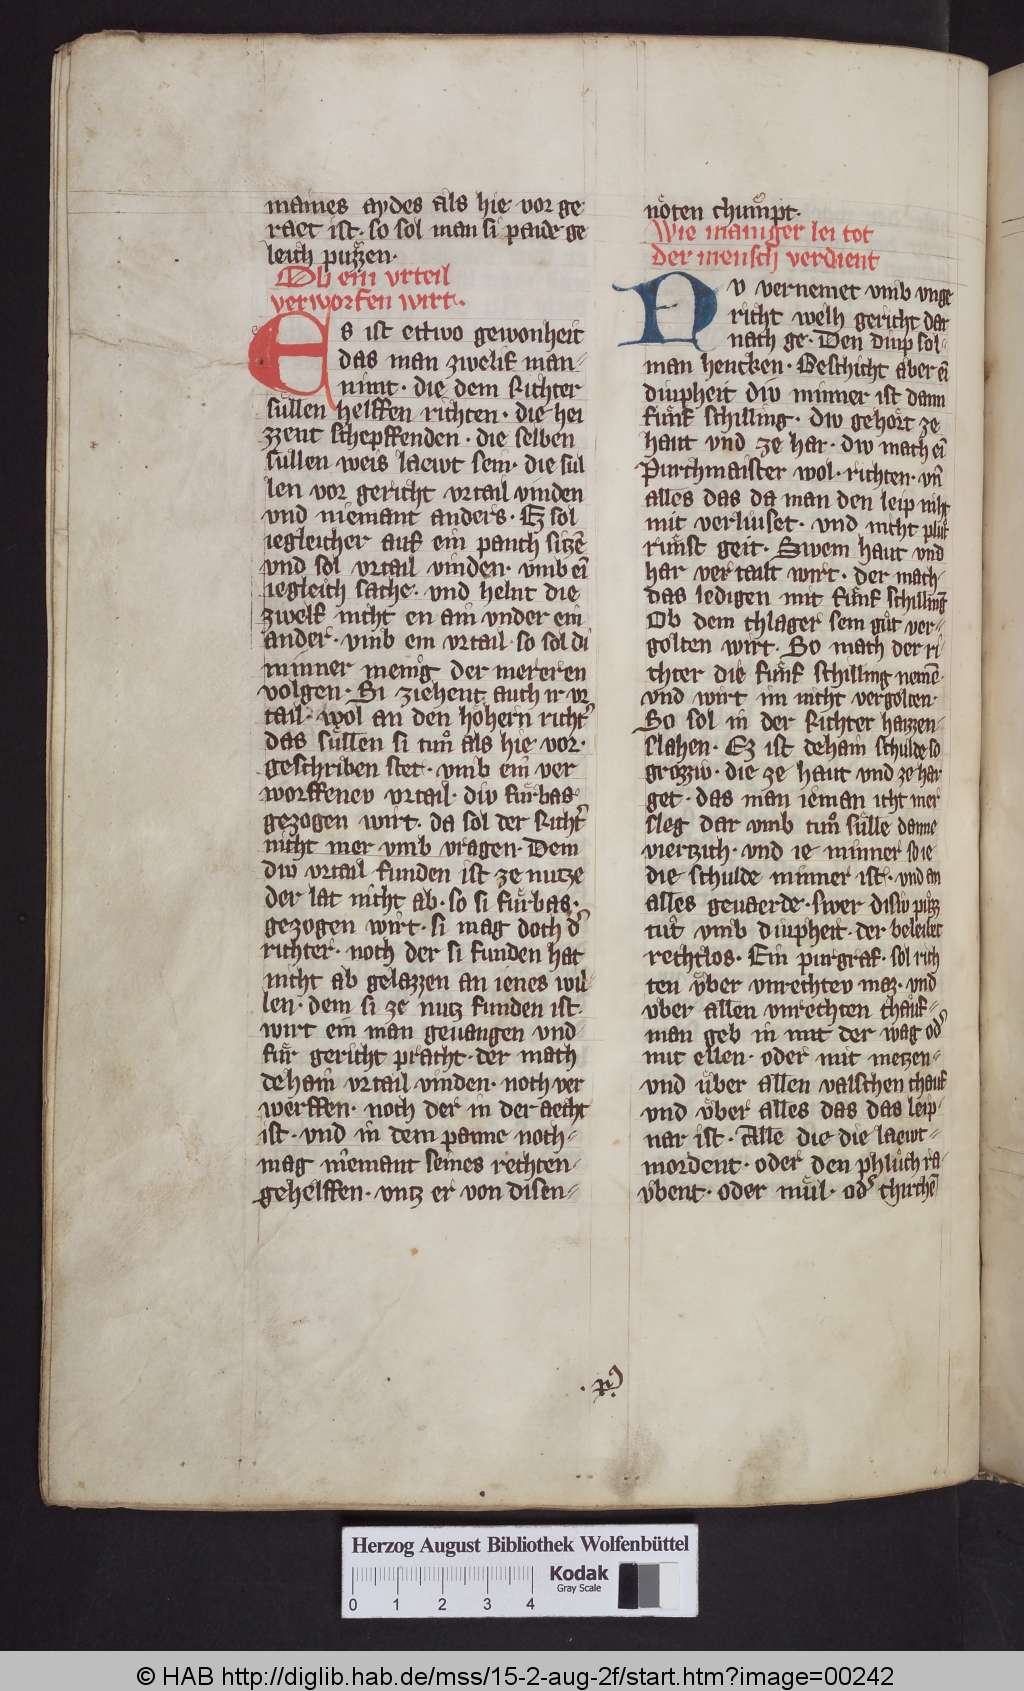 maines aydes als hie vor ge
raet ist· so sol man si paide ge
leich puͤzzen·
Ob ein vrteil
verworfen wirt·
Es ist ettwo gewonheit
das man zwelif man-
nimt· die dem Richter
suͤllen helffen richten· die hei
zzent schepffenden· die selben
sullen weis laewt sein· die sul
len vor gericht vrtail vinden
vnd niemant anders· Ez sol
iegleicher auf ein panch sitzē
vnd sol vrtail vinden· vmb eī
iegleich sache· vnd helnt die
zwelf nicht en ain vnder ein
ander· vmb ein vrtail· so sol di
minner menig der mereren
volgen· Si ziehent auch ir vr
tail· wol an den hohern richt͛
das suͤllen si tuͦn als hie vor·
geschriben stet· vmb ein ver
worffenev vrtail· div fuͤrbas·
gezogen wirt· da sol der Richt͛
nicht mer vmb vragen· Dem
div vrtail funden ist ze nutze
der lat nicht ab· so si fuͤrbas·
gezogen wirt· si mag doch d͛
richter· noch der si funden hat
nicht ab gelazzen an ienes wil-
len· dem si ze nutz funden ist·
wirt ein man geuangen vnd-
fuͤr gericht pracht· der mach
dehain vrtail vinden· noch ver
werffen· noch der in der aecht
ist· vnd in dem panne noch-
mag niemant seines rechten·
gehelffen· vntz er von disen-
noͤten chumpt·
Wie maniger lei tot
der mensch verdient
Nv vernemet vmb vnge
richt welh gericht dar
nach ge· Den diup sol-
man hencken· Geschicht aber eī
diupheit div minner ist dann
fuͤnf schilling· div gehoͤrt ze
haut vnd ze har· div mach eī
Purchmaister wol· richten· vn̄
alles das da man den leip niht
mit verliuset· vnd nicht pluͦt
ruͤnst geit· Swem haut vnd
har vertailt wirt· der mach-
das ledigen mit fuͤnf schillinḡ
Ob dem chlager sein guͦt ver-
golten wirt· So mach der ri
chter die fuͤnf schilling nemē·
vnd wirt im nicht vergolten·
So sol in der Richter haizzen-
slahen· Ez ist dehain schulde so
grozziv· die ze haut vnd ze har
get· das man ieman icht mer
sleg dar vmb tuͦn suͤlle danne
viertzich· vnd ie minner so ie
die schulde minner ist· vnd an
alles geuaerde· swer disiv puͤzz
tuͦt vmb diupheit· der beleibet
rechtlos· Ein purgraf· sol rich
ten uͤber vnrechtev maz· vnd
vber allen vnrechten chauf-
man geb in mit der wag od͛
mit ellen· oder mit metzen-
vnd uͤber allen valschen chauf
vnd vͤber alles das das leip·
nar ist· Alle die die laewt-
mordent· oder den phluͦch ra-
vbent· oder muͤl· od͛ chirchē